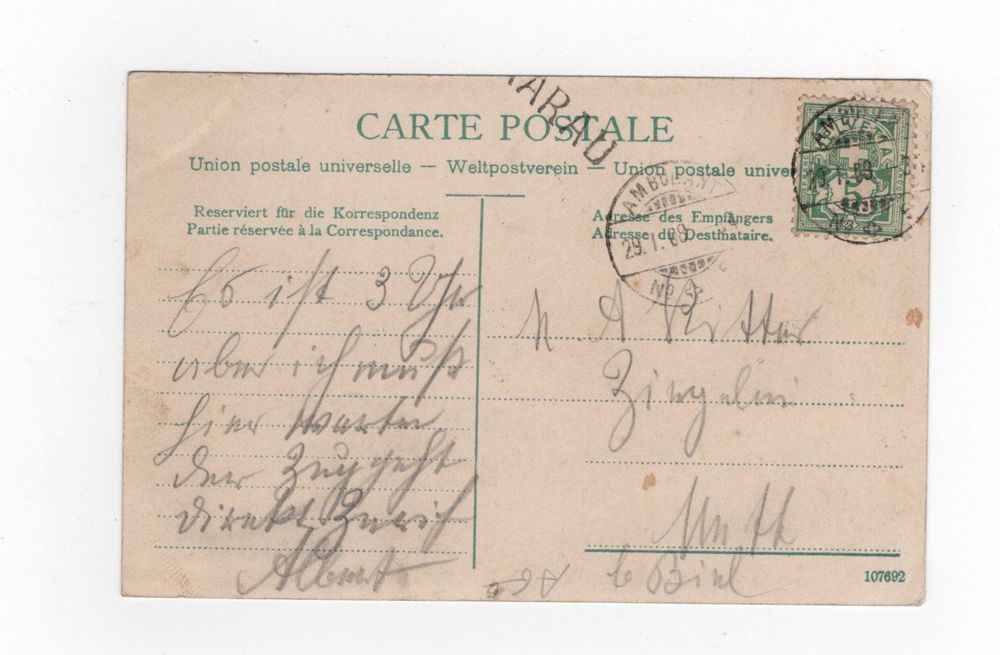 AARAU
CARTE POSTALE
Union postale universelle — Weltpostverein — Union postale
Reserviert für die Korrespondenz
Partie réservée à la Correspondance.
Adresse des Empfängers
Adresse du Destinataire.
AMBULANT
29. I. 08
No
Es ist 3 Uhr
aber ich muß
hier warten
der Zug geht
direkt Zürich
Albert
A Ritter
b Biel
107692